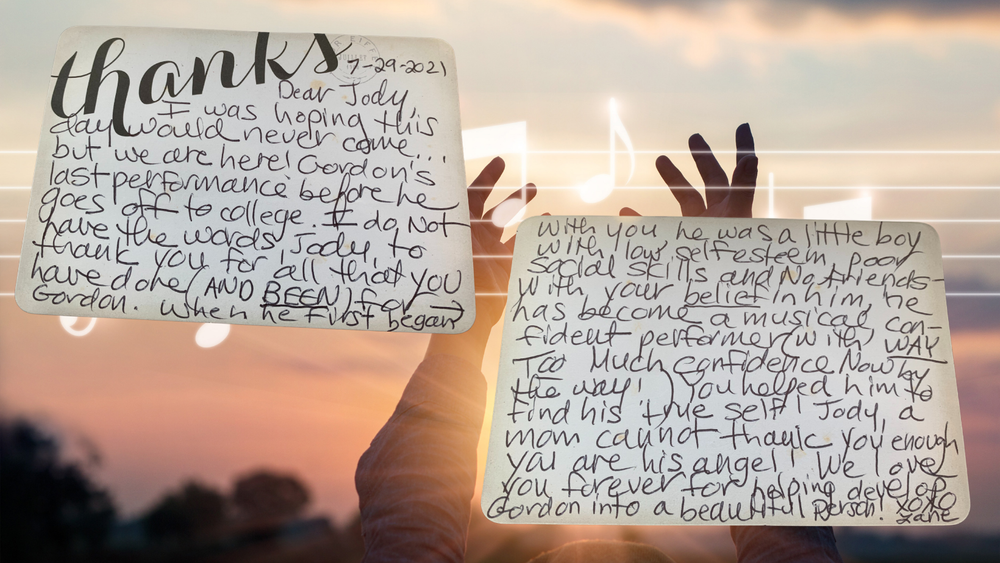 thanks
7-29-2021
Dear Jody,
I was hoping this
day would never come...
but we are here! Gordon's
last performance before he
goes off to college. I do Not
have the words, Jody, to
thank you for all that you
have done (AND BEEN) for
Gordon. When he first began
With you he was a little boy
with low self esteem, poor
social skills and No friends-
With your belief in him, he
has become a musical con-
fident performer (with WAY
Too Much confidence Now by
the way! ) You helped him to
find his true self! Jody, a
mom cannot thank you enough
you are his angel! We love
you forever for helping develop
Gordon into a beautiful Person! xoxo